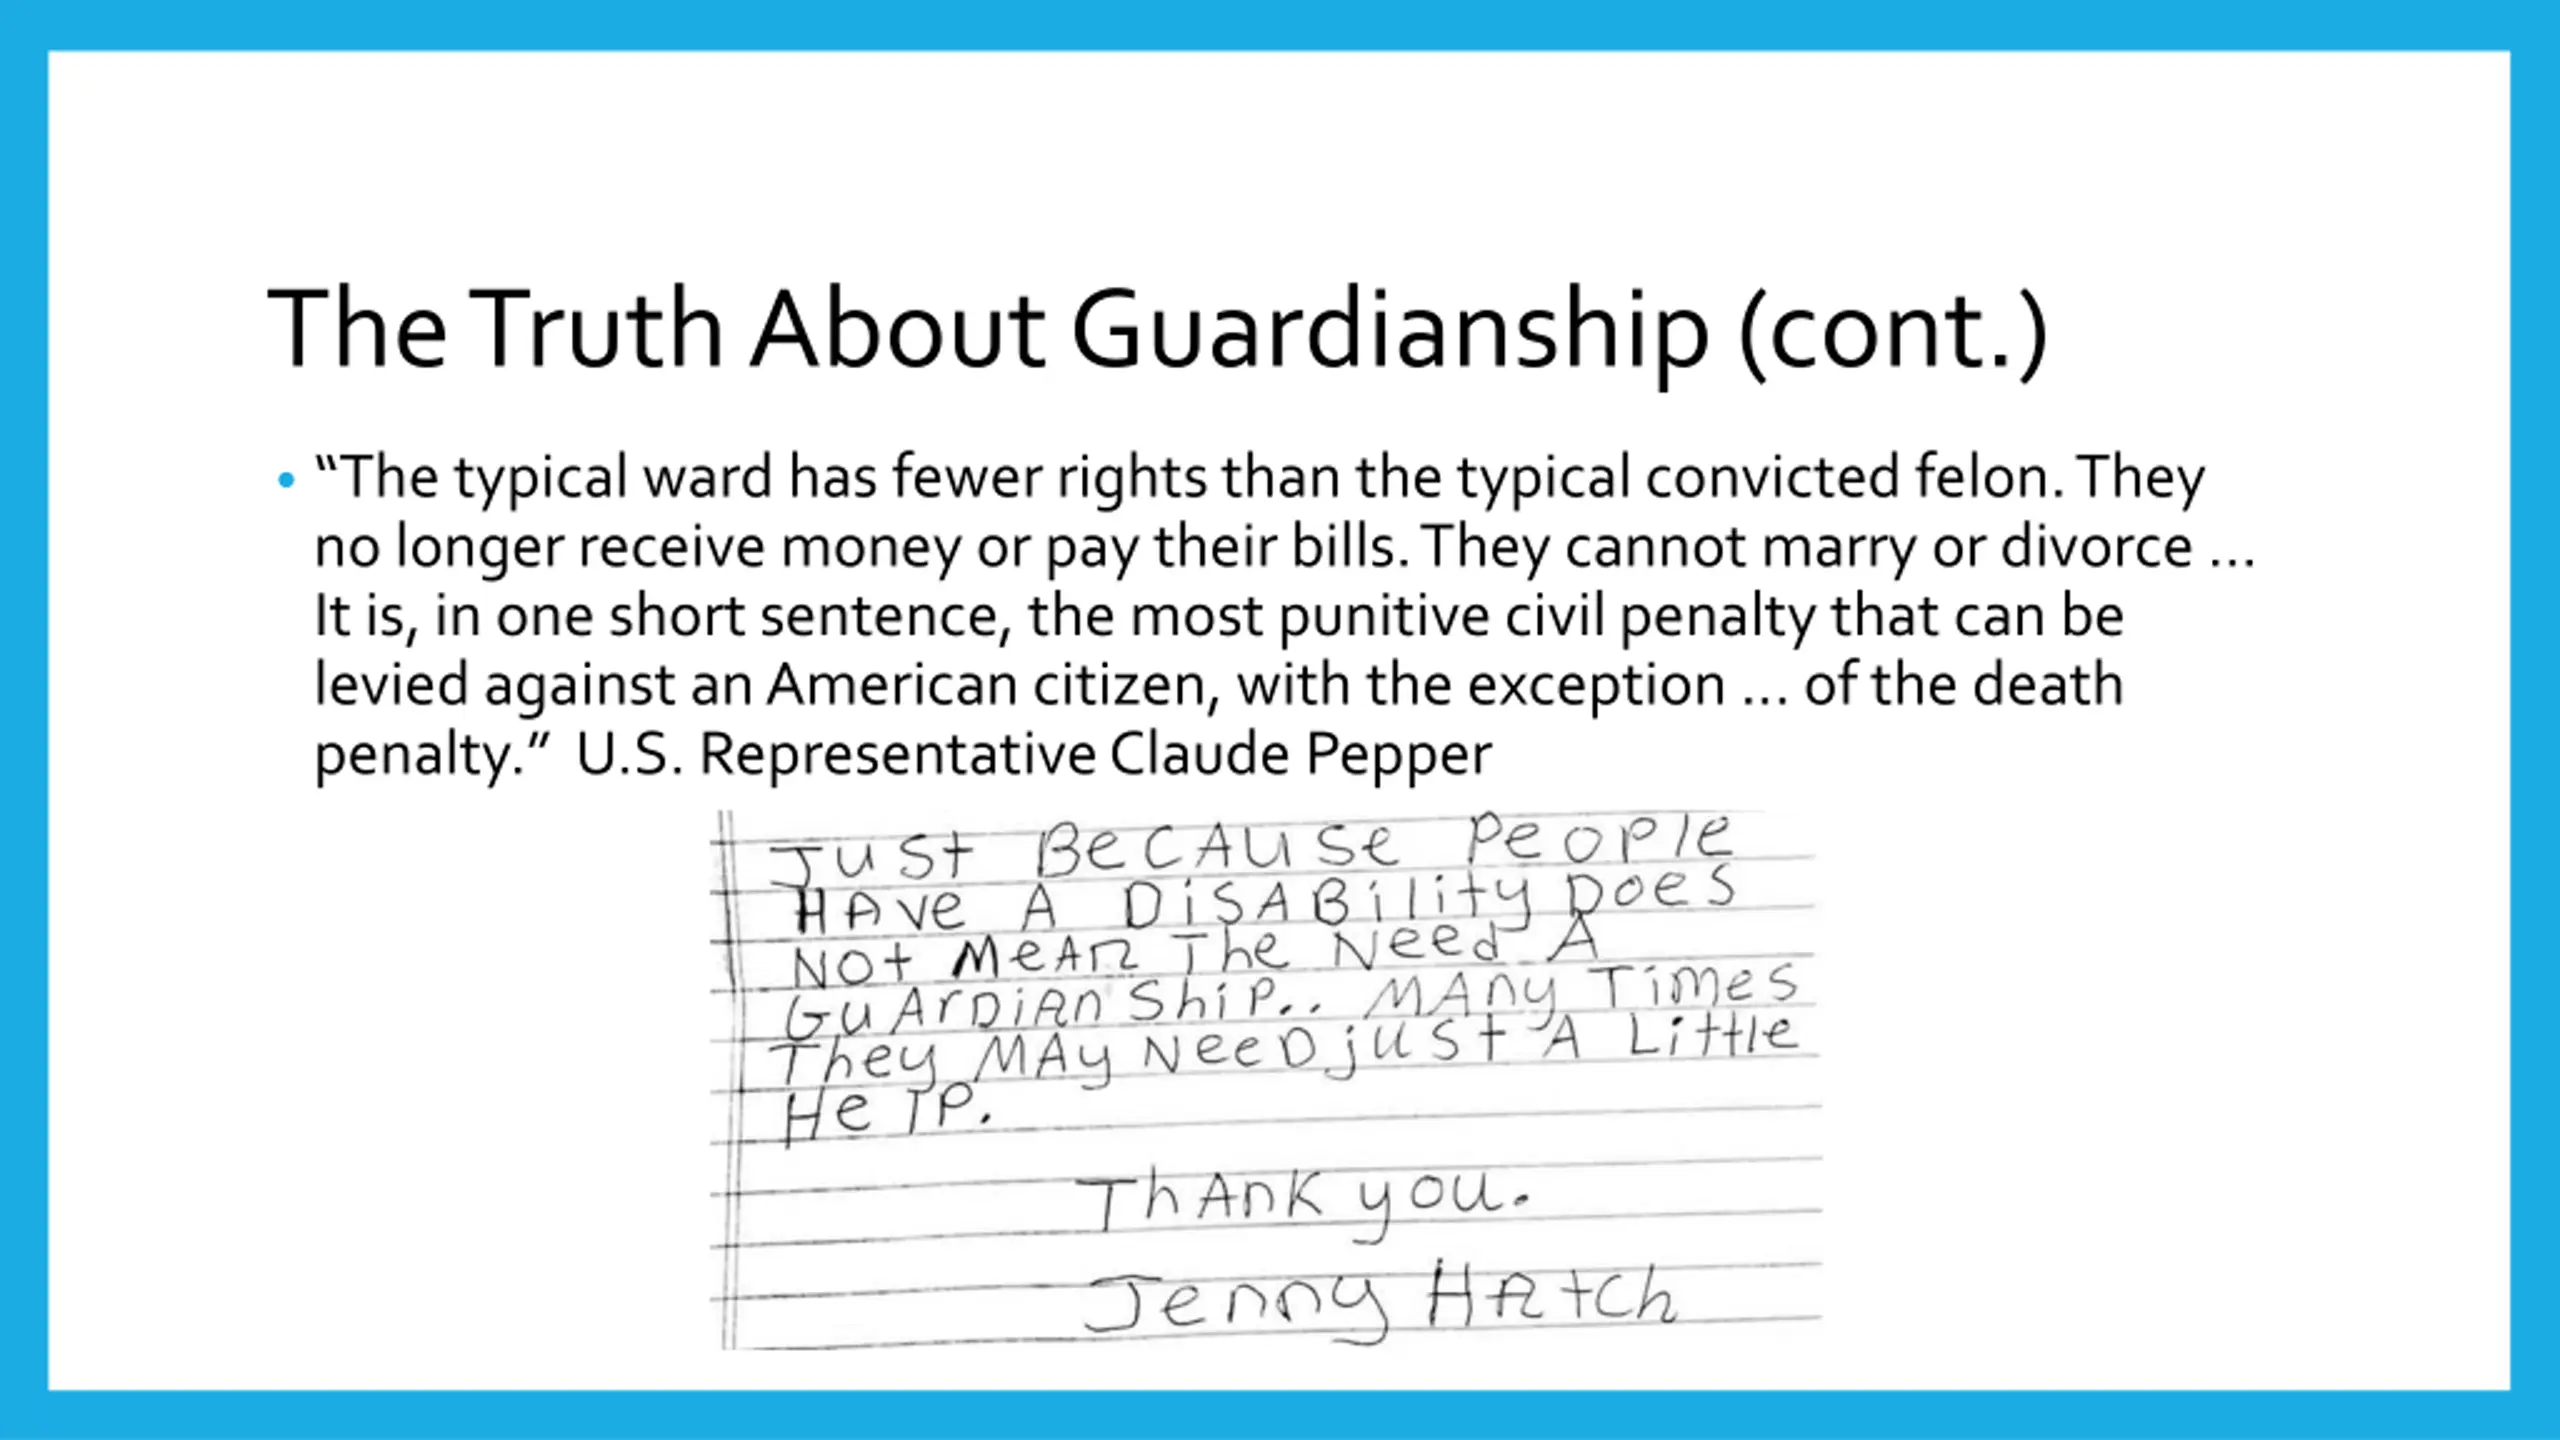 The Truth About Guardianship (cont.)
• “The typical ward has fewer rights than the typical convicted felon. They
no longer receive money or pay their bills. They cannot marry or divorce ...
It is, in one short sentence, the most punitive civil penalty that can be
levied against an American citizen, with the exception ... of the death
penalty.” U.S. Representative Claude Pepper
Just BeCAUSe PeoPle
HAve A DiSABility Does
Not MeAn The Need A
GuArDiAnShiP.. MAny Times
They MAy NeeD just A Little
HelP.
ThAnk you.
Jenny HAtCh